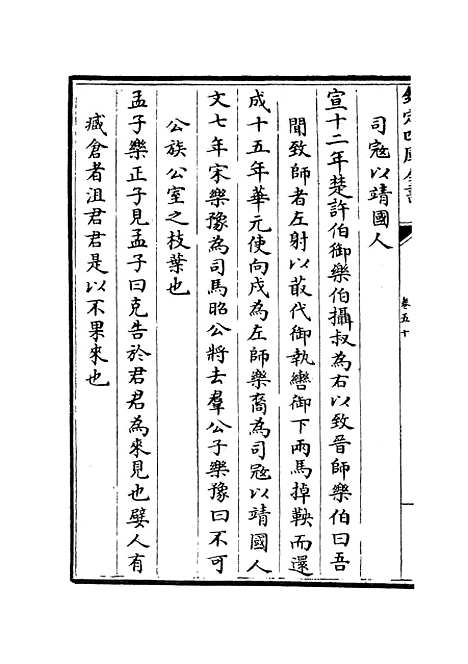 欽定四庫全書
卷五十
司寇以靖國人
宣十二年楚許伯御樂伯攝叔為右以致晉師樂伯曰吾
聞致師者左射以菆代御執轡御下兩馬掉鞅而還
成十五年華元使向戌為左師樂裔為司寇以靖國人
文七年宋樂豫為司馬昭公將去羣公子樂豫曰不可
公族公室之枝葉也
孟子樂正子見孟子曰克告於君君為來見也嬖人有
臧倉者沮君君是以不果來也